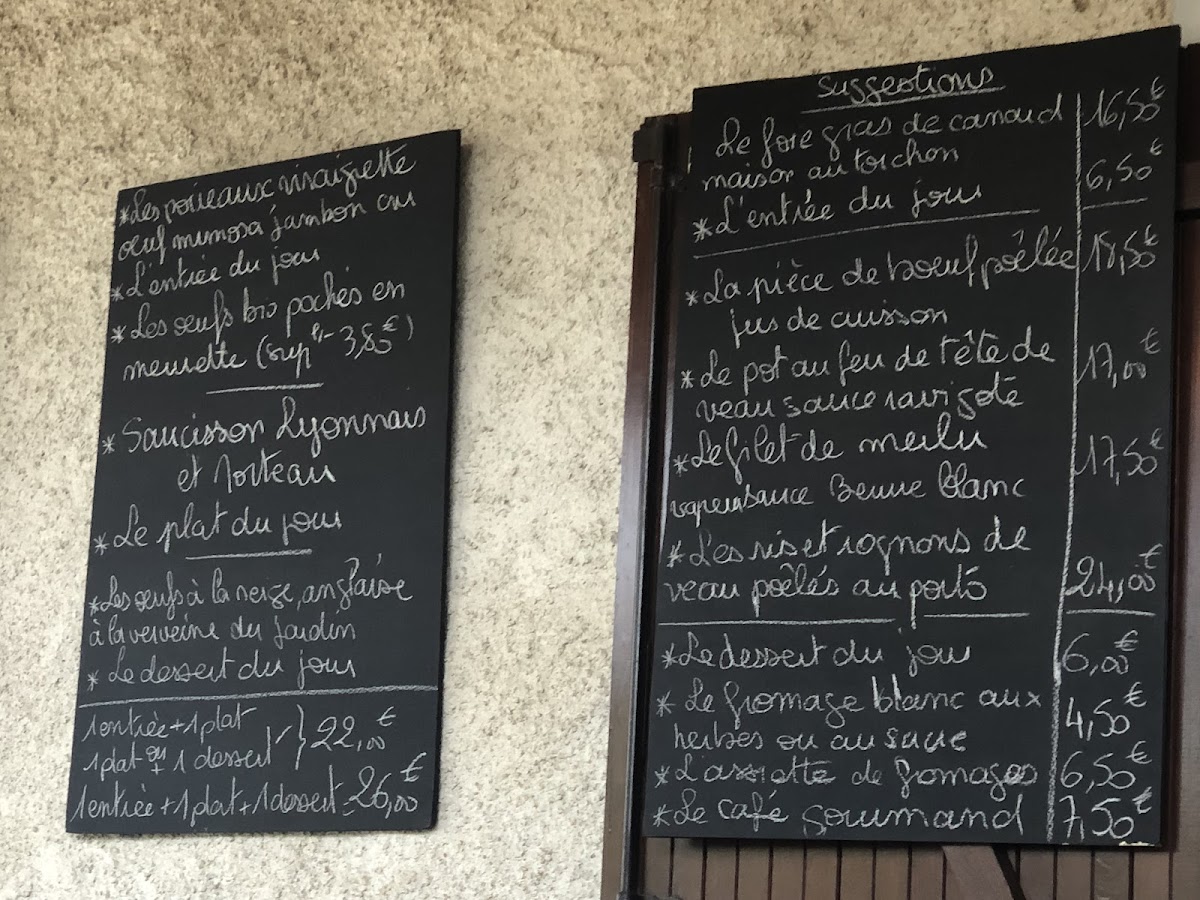 *Les poireaux vinaigrette
œuf mimosa jambon cru
*L'entrée du jour
*Les œufs bio pochés en
meurette (suppl- 3,80€)
* Saucisson Lyonnais
et Morteau
* Le plat du jour
*Les œufs à la neige, anglaise
à la verveine du jardin
* Le dessert du jour
1 entrée + 1 plat
ou
1 plat + 1 dessert } 22,00 €
1 entrée + 1 plat + 1 dessert = 26,00 €
Suggestions
Le foie gras de canard 16,50€
maison au torchon
*L'entrée du jour 6,50€
*La pièce de bœuf poêlée 18,50€
jus de cuisson
*Le pot au feu de tête de 17,00€
veau sauce ravigote
*Le filet de merlu 17,50€
vapeur sauce Beurre blanc
*Les ris et rognons de
veau poêlés au porto 24,00€
*Le dessert du jour 6,00€
* Le fromage blanc aux 4,50€
herbes ou au sucre
*L'assiette de fromages 6,50€
*Le café gourmand 7,50€